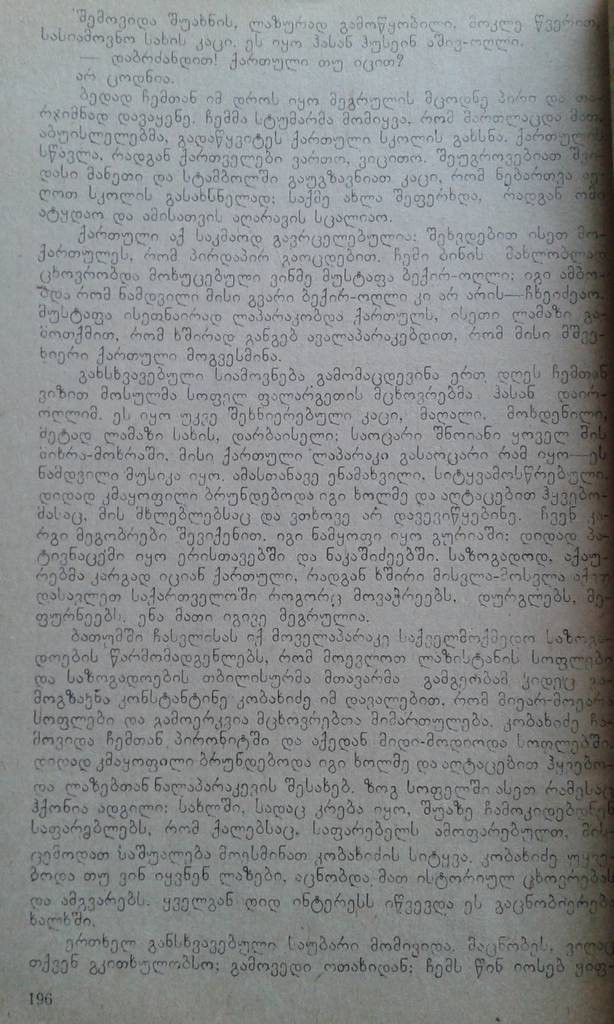 შემოვიდა შუახნის, ლაზურად გამოწყობილი, მოკლე წვერით,
სასიამოვნო სახის კაცი. ეს იყო ჰასან ჰუსეინ აშივ-ოღლი.
— დაბრძანდით! ქართული თუ იცით?
არ ცოდნია.
ბედად ჩემთან იმ დროს იყო მეგრულის მცოდნე პირი და თა-
რჯიმნად დავაყენე. ჩემმა სტუმარმა მომიყვა, რომ მართლაცდა მათ
აბუისლელებმა, გადაწყვიტეს ქართული სკოლის გახსნა. ქართულის
სწავლა, რადგან ქართველები ვართო, ვიცითო. შეუგროვებიათ
დასი მანეთი და სტამბოლში გაუგზავნიათ კაცი, რომ ნებართვა აე-
ღოთ სკოლის გასახსნელად; საქმე ახლა შეფერხდა, რადგან ომი
ატყდაო და ამისათვის აღარავის სცალიაო.
ქართული აქ საკმაოდ გავრცელებულია; შეხვდებით ისეთ მო-
ქართულეს, რომ პირდაპირ გაოცდებით. ჩემი ბინის მახლობლად
ცხოვრობდა მოხუცებული ვინმე მუსტაფა ბექირ-ოღლი; იგი ამბო-
ბდა რომ ნამდვილი მისი გვარი ბექირ-ოღლი კი არ არის—ჩხეიძეაო.
მუსტაფა ისეთნაირად ლაპარაკობდა ქართულს, ისეთი ლამაზი გა-
მოთქმით, რომ ხშირად განგებ ავალაპარაკებდით, რომ მისი მშვე-
ნიერი ქართული მოგვესმინა.
განსხვავებული სიამოვნება გამომაცდევინა ერთ დღეს ჩემთან
ვიზით მოსულმა სოფელ ფალარგეთის მცხოვრებმა ჰასან დაირ-
ოღლიმ. ეს იყო უკვე შეხნიერებული კაცი, მაღალი, მოხდენილი,
მეტად ლამაზი სახის, დარბაისელი; საოცარი შნოიანი ყოველ მის
მიხრა-მოხრაში. მისი ქართული ლაპარაკი გასაოცარი რამ იყო—ეს
ნამდვილი მუსიკა იყო. ამასთანავე ენამახვილი, სიტყვამოსწრებული.
დიდად კმაყოფილი ბრუნდებოდა იგი ხოლმე და აღტაცებით ჰყვებო-
მასაც, მის მხლებლებსაც და ვთხოვე არ დავევიწყებინე. ჩვენ კა-
რგი მეგობრები შევიქენით. იგი ნამყოფი იყო გურიაში; დიდად პა-
ტივნაცემი იყო ერისთავებში და ნაკაშიძეებში. საზოგადოდ, აქაუ-
რებმა კარგად იციან ქართული, რადგან ხშირი მისვლა-მოსვლა აქვთ
დასავლეთ საქართველოში როგორც მოვაჭრეებს, დურგლებს, მე-
ფურნეებს. ენა მათი იგივე მეგრულია.
ბათუმში ჩასვლისას იქ მოველაპარაკე საქველმოქმედო საზოგა-
დოების წარმომადგენლებს, რომ მოევლოთ ლაზისტანის სოფლები
და საზოგადოების თბილისურმა მთავარმა გამგეობამ კიდეც გა-
მოგზავნა კონსტანტინე კობახიძე იმ დავალებით, რომ მიევარ-მოევარა
სოფლები და გამოერკვია მცხოვრებთა მიმართულება. კობახიძე ჩა-
მოვიდა ჩემთან პირონიტში და აქედან მიდი-მოდიოდა სოფლებში.
დიდად კმაყოფილი ბრუნდებოდა იგი ხოლმე და აღტაცებით ჰყვებო-
და ლაზებთან ნალაპარაკევის შესახებ. ზოგ სოფელში ასეთ რამესაც
ჰქონია ადგილი: სახლში, სადაც კრება იყო, შუაზე ჩამოკიდებდნენ
საფარებლებს, რომ ქალებსაც, საფარებელს ამოფარებულთ,
ცემოდათ საშუალება მოესმინათ კობახიძის სიტყვა. კობახიძე უყვე-
ბოდა თუ ვინ იყვნენ ლაზები, აცნობდა მათ ისტორიულ ცხოვრებას
და ამგვარებს. ყველგან დიდ ინტერესს იწვევდა ეს გაცნობიერება
ხალხში.
ერთხელ განსხვავებული საუბარი მომივიდა. მაცნობეს, ვიღაც
თქვენ გკითხულობსო; გამოვედი ოთახიდან; ჩემს წინ იოსებ ყიფ-
196